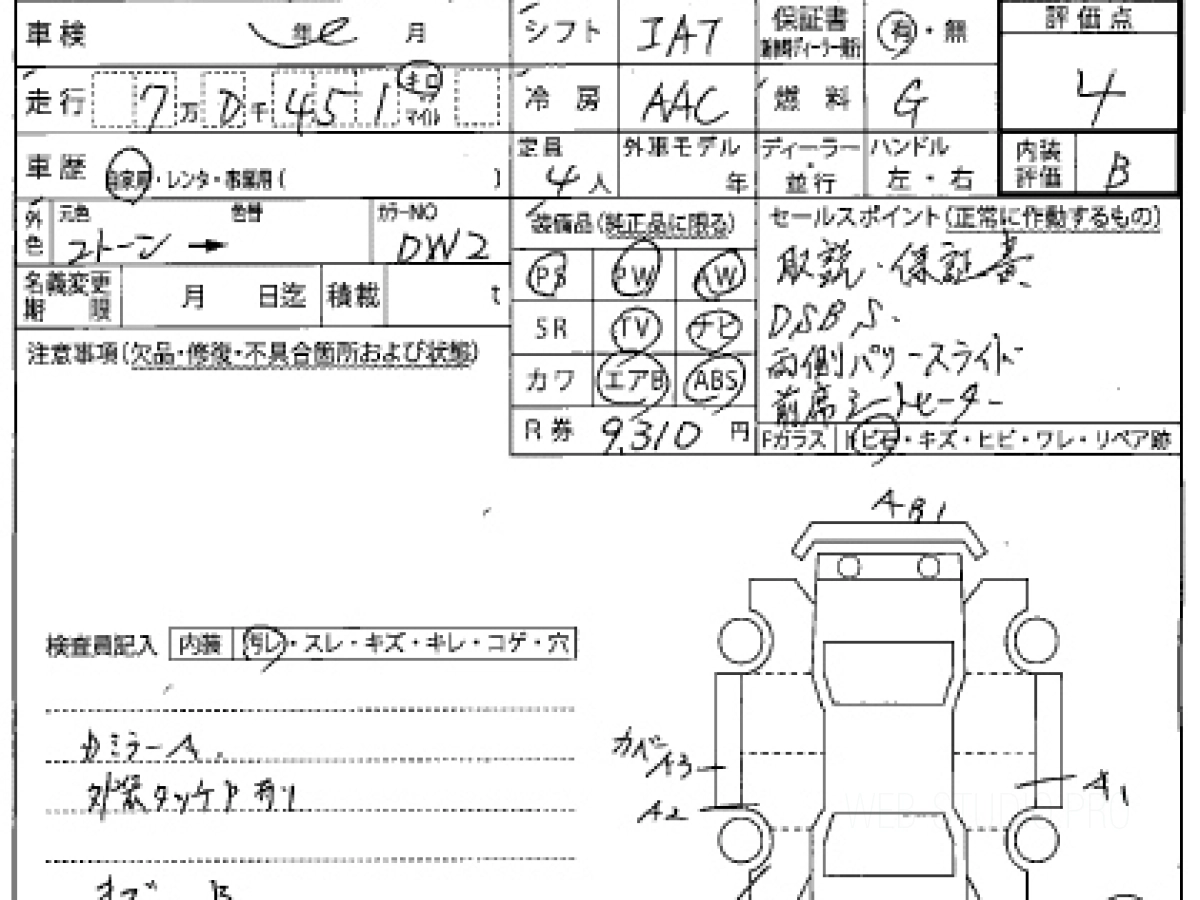 車検 年 月 シフト IAT 保証書 有・無 評価点
新車時ディーラー発行
走行 7万0千451 キロ マイル 冷房 AAC 燃料 G 4
車歴 自家用・レンタ・事業用( ) 定員 4人 外車モデル 年 ディーラー・並行 ハンドル 左・右 内装評価 B
外色 元色 2トーン → 色替 カラーNO DW2 装備品(純正品に限る) セールスポイント(正常に作動するもの)
名義変更期限 月 日迄 積載 t PS PW AW 取説・保証書
SR TV ナビ DSBS.
注意事項(欠品・修復・不具合箇所および状態) 両側パワースライド
カワ エアB ABS 前席シートヒーター
R券 9,310円 Fガラス 飛ビ石・キズ・ヒビ・ワレ・リペア跡
AB1
検査員記入 内装 汚レ・スレ・キズ・キレ・コゲ・穴
ミラーA.
カバー
A3
外装タッチP有り A1
A2
WEB STUDIO PRO